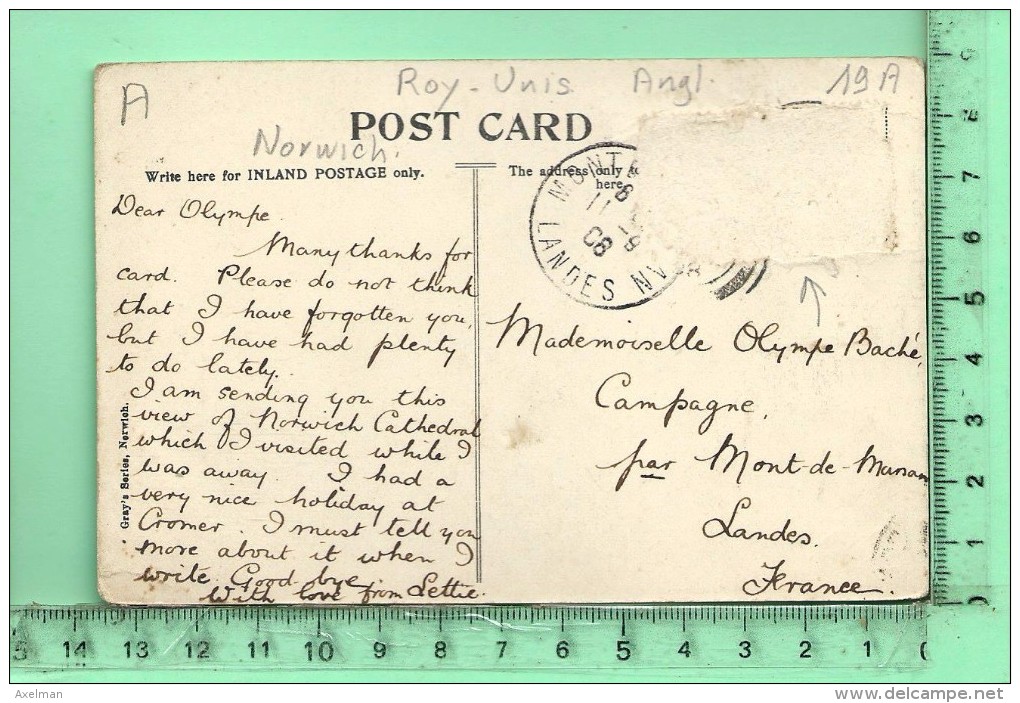 A
Roy-Unis Angl. 19A
POST CARD
Norwich.
Write here for INLAND POSTAGE only.
The address only
here
LANDES
11
08
Dear Olympe.
Many thanks for
card. Please do not think
that I have forgotten you,
but I have had plenty
to do lately.
I am sending you this
view of Norwich Cathedral
which I visited while I
was away. I had a
very nice holiday at
Cromer. I must tell you
more about it when I
write. Good bye
With love from Lettie.
Gray's Series, Norwich.
Mademoiselle Olympe Baché
Campagne,
par Mont-de-Marsan
Landes.
France.
15 14 13 12 11 10 9 8 7 6 5 4 3 2 1 0
9 8 7 6 5 4 3 2 1 0
Axelman
www.delcampe.net